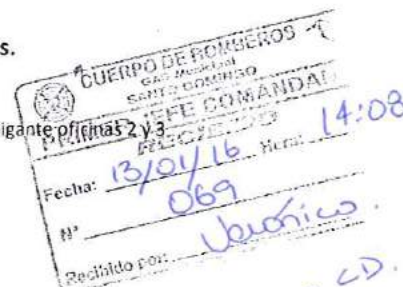 s.
CUERPO DE BOMBEROS
GAD Municipal
SANTO DOMINGO
PRIMER JEFE COMANDAN
igante oficinas 2 y 3
RECIBIDO
Fecha: 13/01/16 Hora: 14:08
N° 069
Recibido por: Verónica.
CD.